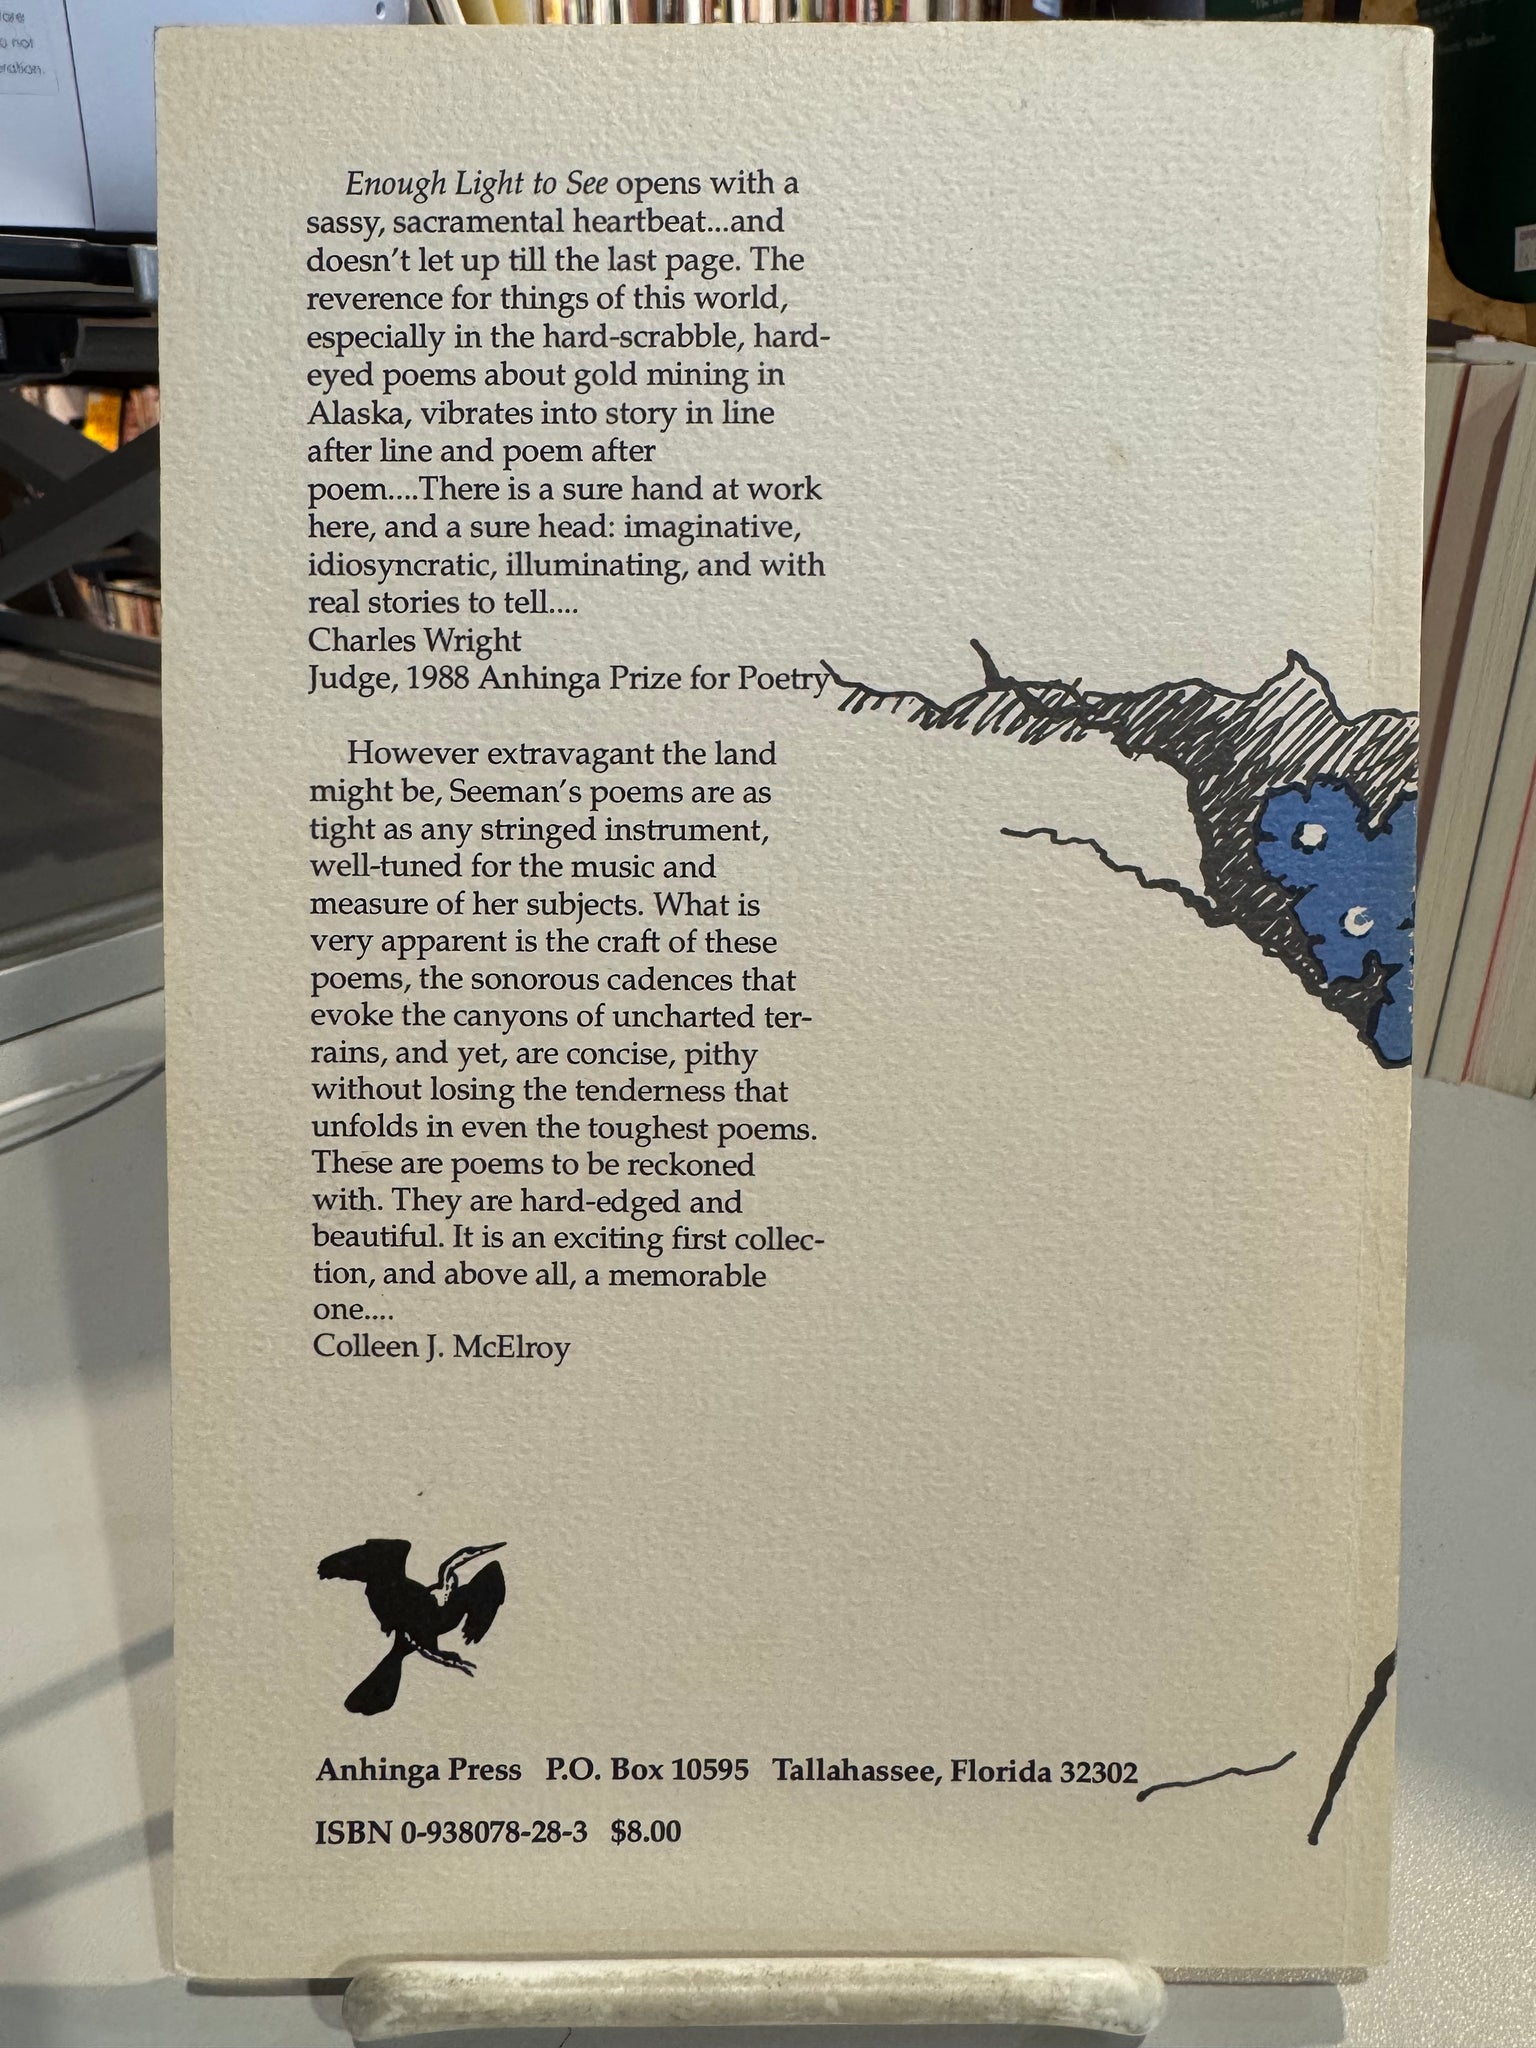 Enough Light to See opens with a
sassy, sacramental heartbeat...and
doesn't let up till the last page. The
reverence for things of this world,
especially in the hard-scrabble, hard-
eyed poems about gold mining in
Alaska, vibrates into story in line
after line and poem after
poem....There is a sure hand at work
here, and a sure head: imaginative,
idiosyncratic, illuminating, and with
real stories to tell....
Charles Wright
Judge, 1988 Anhinga Prize for Poetry
However extravagant the land
might be, Seeman's poems are as
tight as any stringed instrument,
well-tuned for the music and
measure of her subjects. What is
very apparent is the craft of these
poems, the sonorous cadences that
evoke the canyons of uncharted ter-
rains, and yet, are concise, pithy
without losing the tenderness that
unfolds in even the toughest poems.
These are poems to be reckoned
with. They are hard-edged and
beautiful. It is an exciting first collec-
tion, and above all, a memorable
one....
Colleen J. McElroy
Anhinga Press P.O. Box 10595 Tallahassee, Florida 32302
ISBN 0-938078-28-3 $8.00